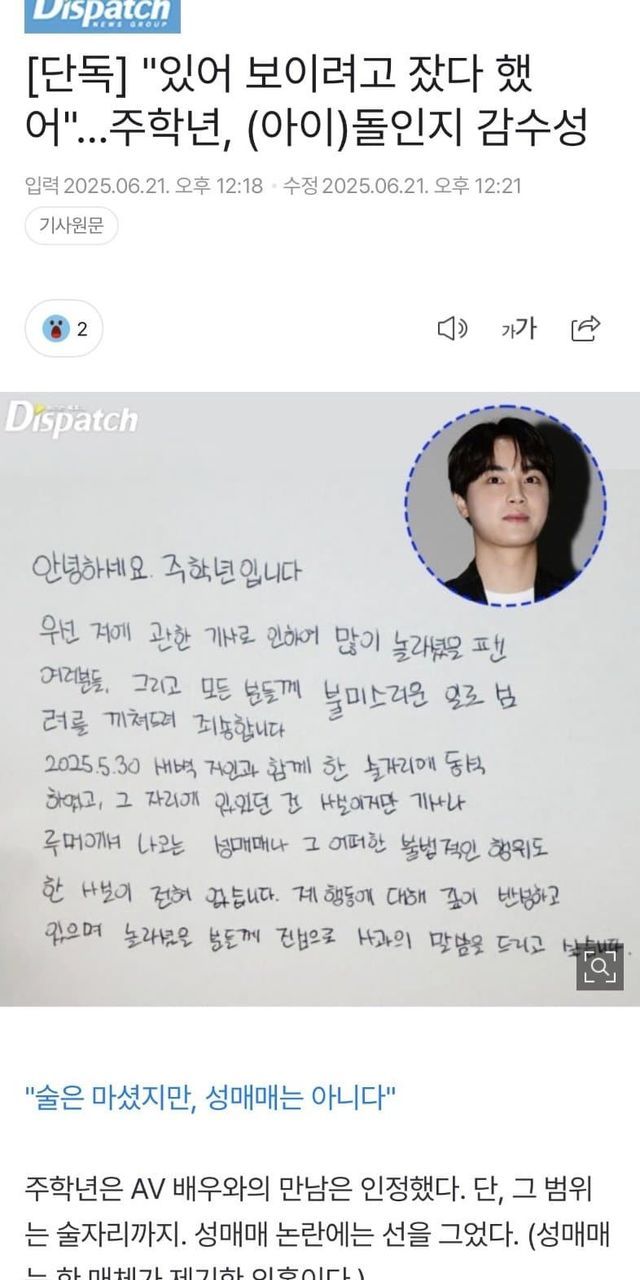 Dispatch
NEWS GROUP
[단독] "있어 보이려고 잤다 했
어"…주학년, (아이)돌인지 감수성
입력 2025.06.21. 오후 12:18 · 수정 2025.06.21. 오후 12:21
기사원문
2
가가
Dispatch
안녕하세요. 주학년입니다
우선 저에 관한 기사로 인하여 많이 놀라셨을 팬
여러분들, 그리고 모든 분들께 불미스러운 일로 심
려를 끼쳐드려 죄송합니다
2025.5.30 새벽 지인과 함께 한 술자리에 동석
하였고, 그 자리에 있었던 건 사실이지만 기사나
루머에서 나오는 성매매나 그 어떠한 불법적인 행위도
한 사실이 전혀 없습니다. 제 행동에 대해 깊이 반성하고
있으며 놀라셨을 분들께 진심으로 사과의 말씀을 드리고 싶습니다.
"술은 마셨지만, 성매매는 아니다"
주학년은 AV 배우와의 만남은 인정했다. 단, 그 범위
는 술자리까지. 성매매 논란에는 선을 그었다. (성매매
는 한 매체가 제기한 의혹이다.)